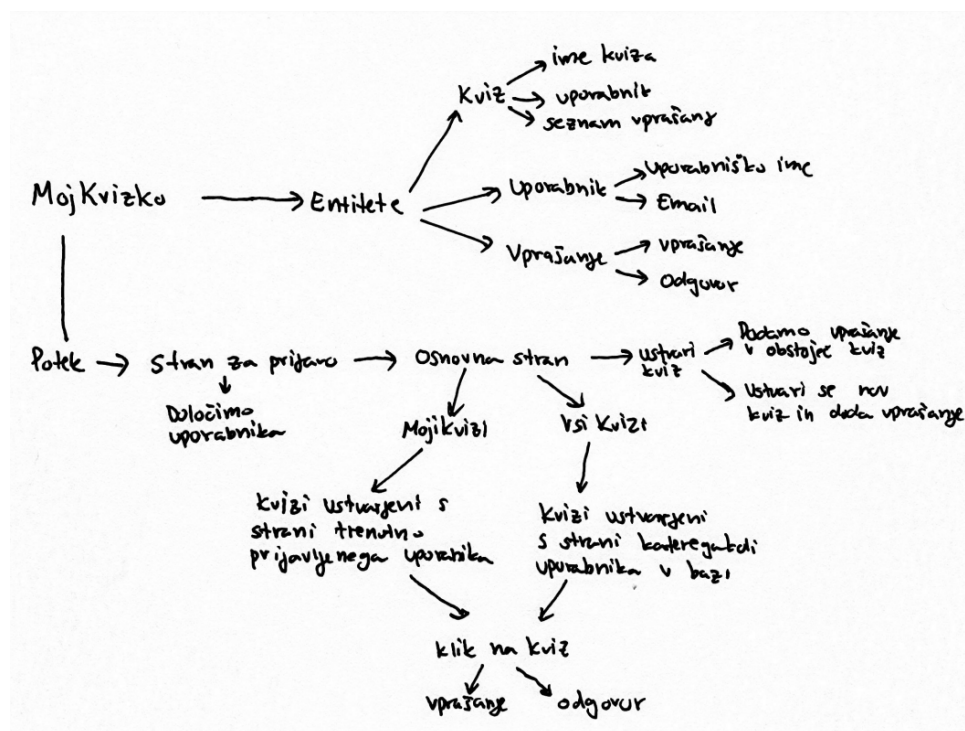 ime kviza
Kviz
uporabnik
seznam vprašanj
MojKvizko
Entitete
Uporabnik
Uporabniško ime
Email
Vprašanje
vprašanje
Odgovor
Potek
Stran za prijavo
Določimo
uporabnika
Osnovna stran
ustvari
kviz
Dodamo vprašanje
v obstoječ kviz
Ustvari se nov
kviz in doda vprašanje
MojiKvizi
Vsi Kvizi
Kvizi ustvarjeni s
strani trenutno
prijavljenega uporabnika
Kvizi ustvarjeni
s strani kateregakoli
uporabnika v bazi
klik na kviz
vprašanje
odgovor